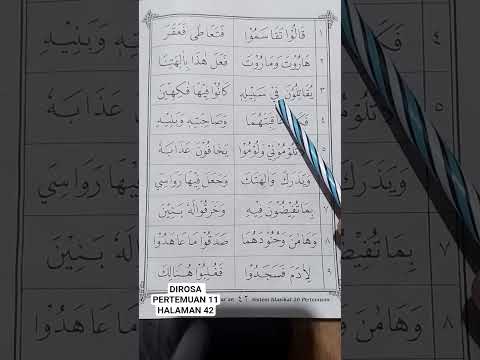 ١ قَالُوْا تَقَاسَمُوْا فَتَعَاطٰى فَعَقَرَ
٢ هَارُوْتَ وَمَارُوْتَ فَعَلَ هٰذَا بِاٰلِهَتِنَا
٣ يُقَاتِلُوْنَ فِيْ سَبِيْلِهٖ كَانُوْا فِيْهَا فٰكِهِيْنَ
٤ وَصَاحِبَتِهٖ وَبَنِيْهِ
٥ وَلُوْمُوْا يَخَافُوْنَ عَذَابَهٗ
وَيَذَرَكَ وَاٰلِهَتَكَ وَجَعَلَ فِيْهَا رَوَاسِيَ
٧ بِمَا تُفِيْضُوْنَ فِيْهِ وَخَرَقُوْا لَهٗ بَنِيْنَ
٨ وَهَامٰنَ وَجُنُوْدَهُمَا صَدَقُوْا مَا عَاهَدُوا
٩ لِاٰدَمَ فَسَجَدُوْا فَغُلِبُوْا هُنَالِكَ
٤٢ Sistem Klasikal 20 Pertemuan
DIROSA
PERTEMUAN 11
HALAMAN 42